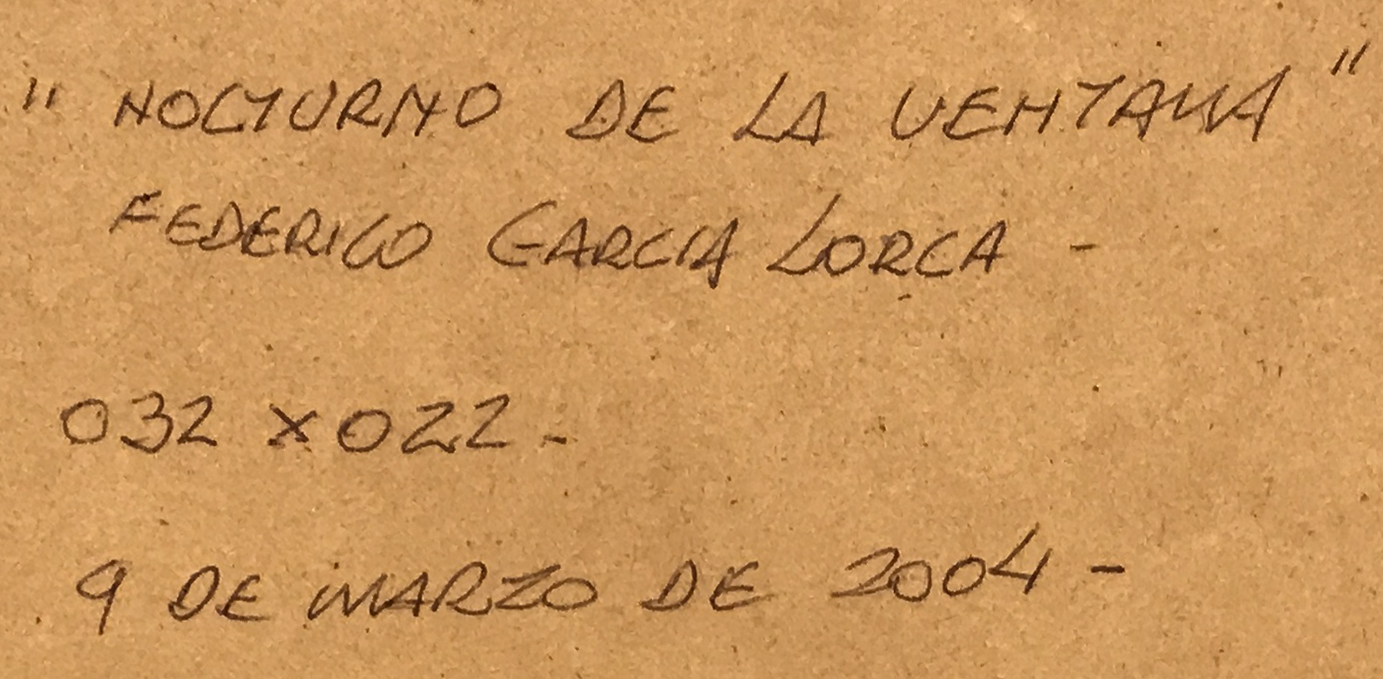 " NOCTURNO DE LA VENTANA "
FEDERICO GARCIA LORCA -
032 X 022 -
9 DE MARZO DE 2004 -